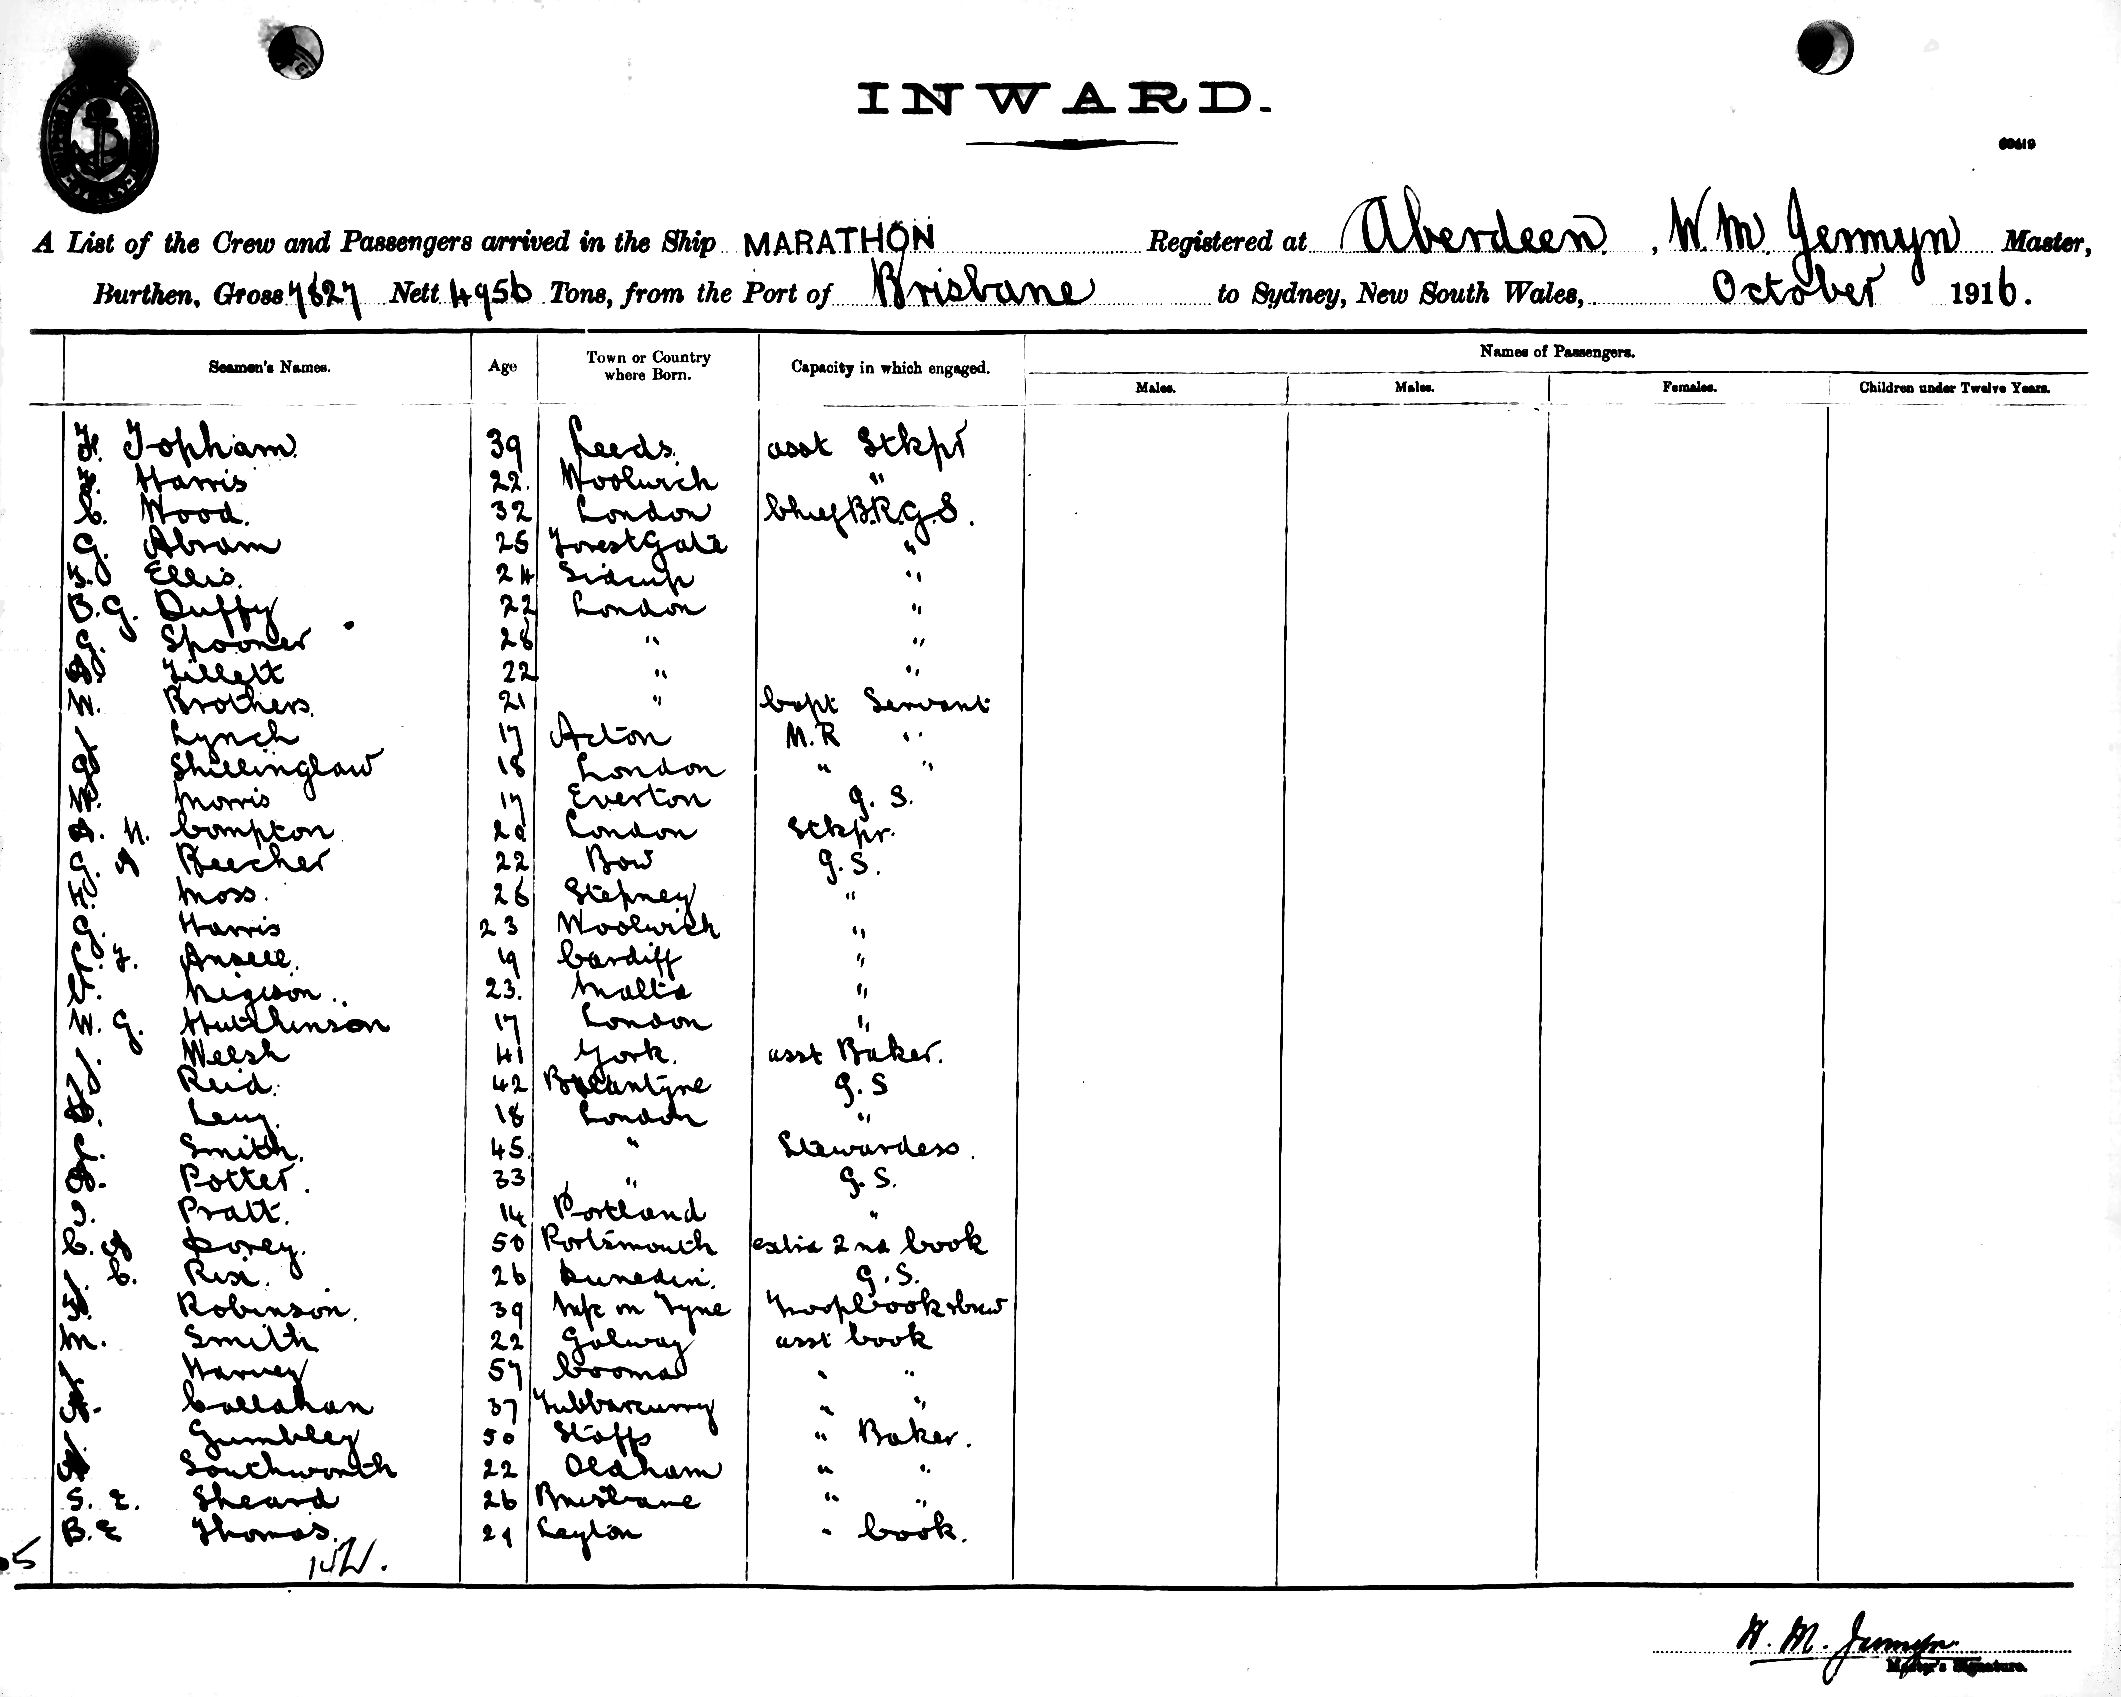 INWARD.
A List of the Crew and Passengers arrived in the Ship MARATHON Registered at Aberdeen, W. M. Jermyn Master,
Burthen, Gross 7827 Nett 4956 Tons, from the Port of Brisbane to Sydney, New South Wales, October 1916.
Seamen's Names. Age Town or Country where Born. Capacity in which engaged. Names of Passengers.
Males. Males. Females. Children under Twelve Years.
F. Topham 39 Leeds. asst Stkpr
Harris 22. Woolwich "
C. Wood. 32 London Chief B.R.G.S.
G. Abram 25 Forest Gate "
F. Ellis. 24 Sidcup "
B. G. Duffy 22 London "
G. Spooner 28 " "
Tillett 22 " "
W. Brothers. 21 " Capt Servant
J Lynch 17 Acton M.R "
Shillinglaw 18 London " "
Morris 17 Everton G. S.
A. H. Compton London Stkpr.
G. A Beecher 22 Bow G.S.
Moss. 26 Stepney "
G. Harris 23 Woolwich "
F. Ansell. 19 Cardiff "
23. Malta "
W. G. Hutchinson 17 London "
J. Welsh 41 York. asst Baker.
Reid. 42 Ballantyne G.S
Levy. 18 London "
Smith. 45. " Stewardess.
Potter. 33 " G. S.
Pratt. 14 Portland "
C. A Dorey. 50 Portsmouth extra 2nd Cook
J. C. Rix. 26 Dunedin. G.S.
Robinson. 39 on Tyne Troop Cook
M. Smith 22 Galway asst Cook
J Harvey 57 Cooma " "
Callahan 37 Tubbercurry " "
Gumbley 50 Staffs " Baker.
Southworth 22 Oldham " "
S. E. Sheard 26 Brisbane " "
B. E Thomas. Leyton " Cook.
W. M. Jermyn
Master's Signature.